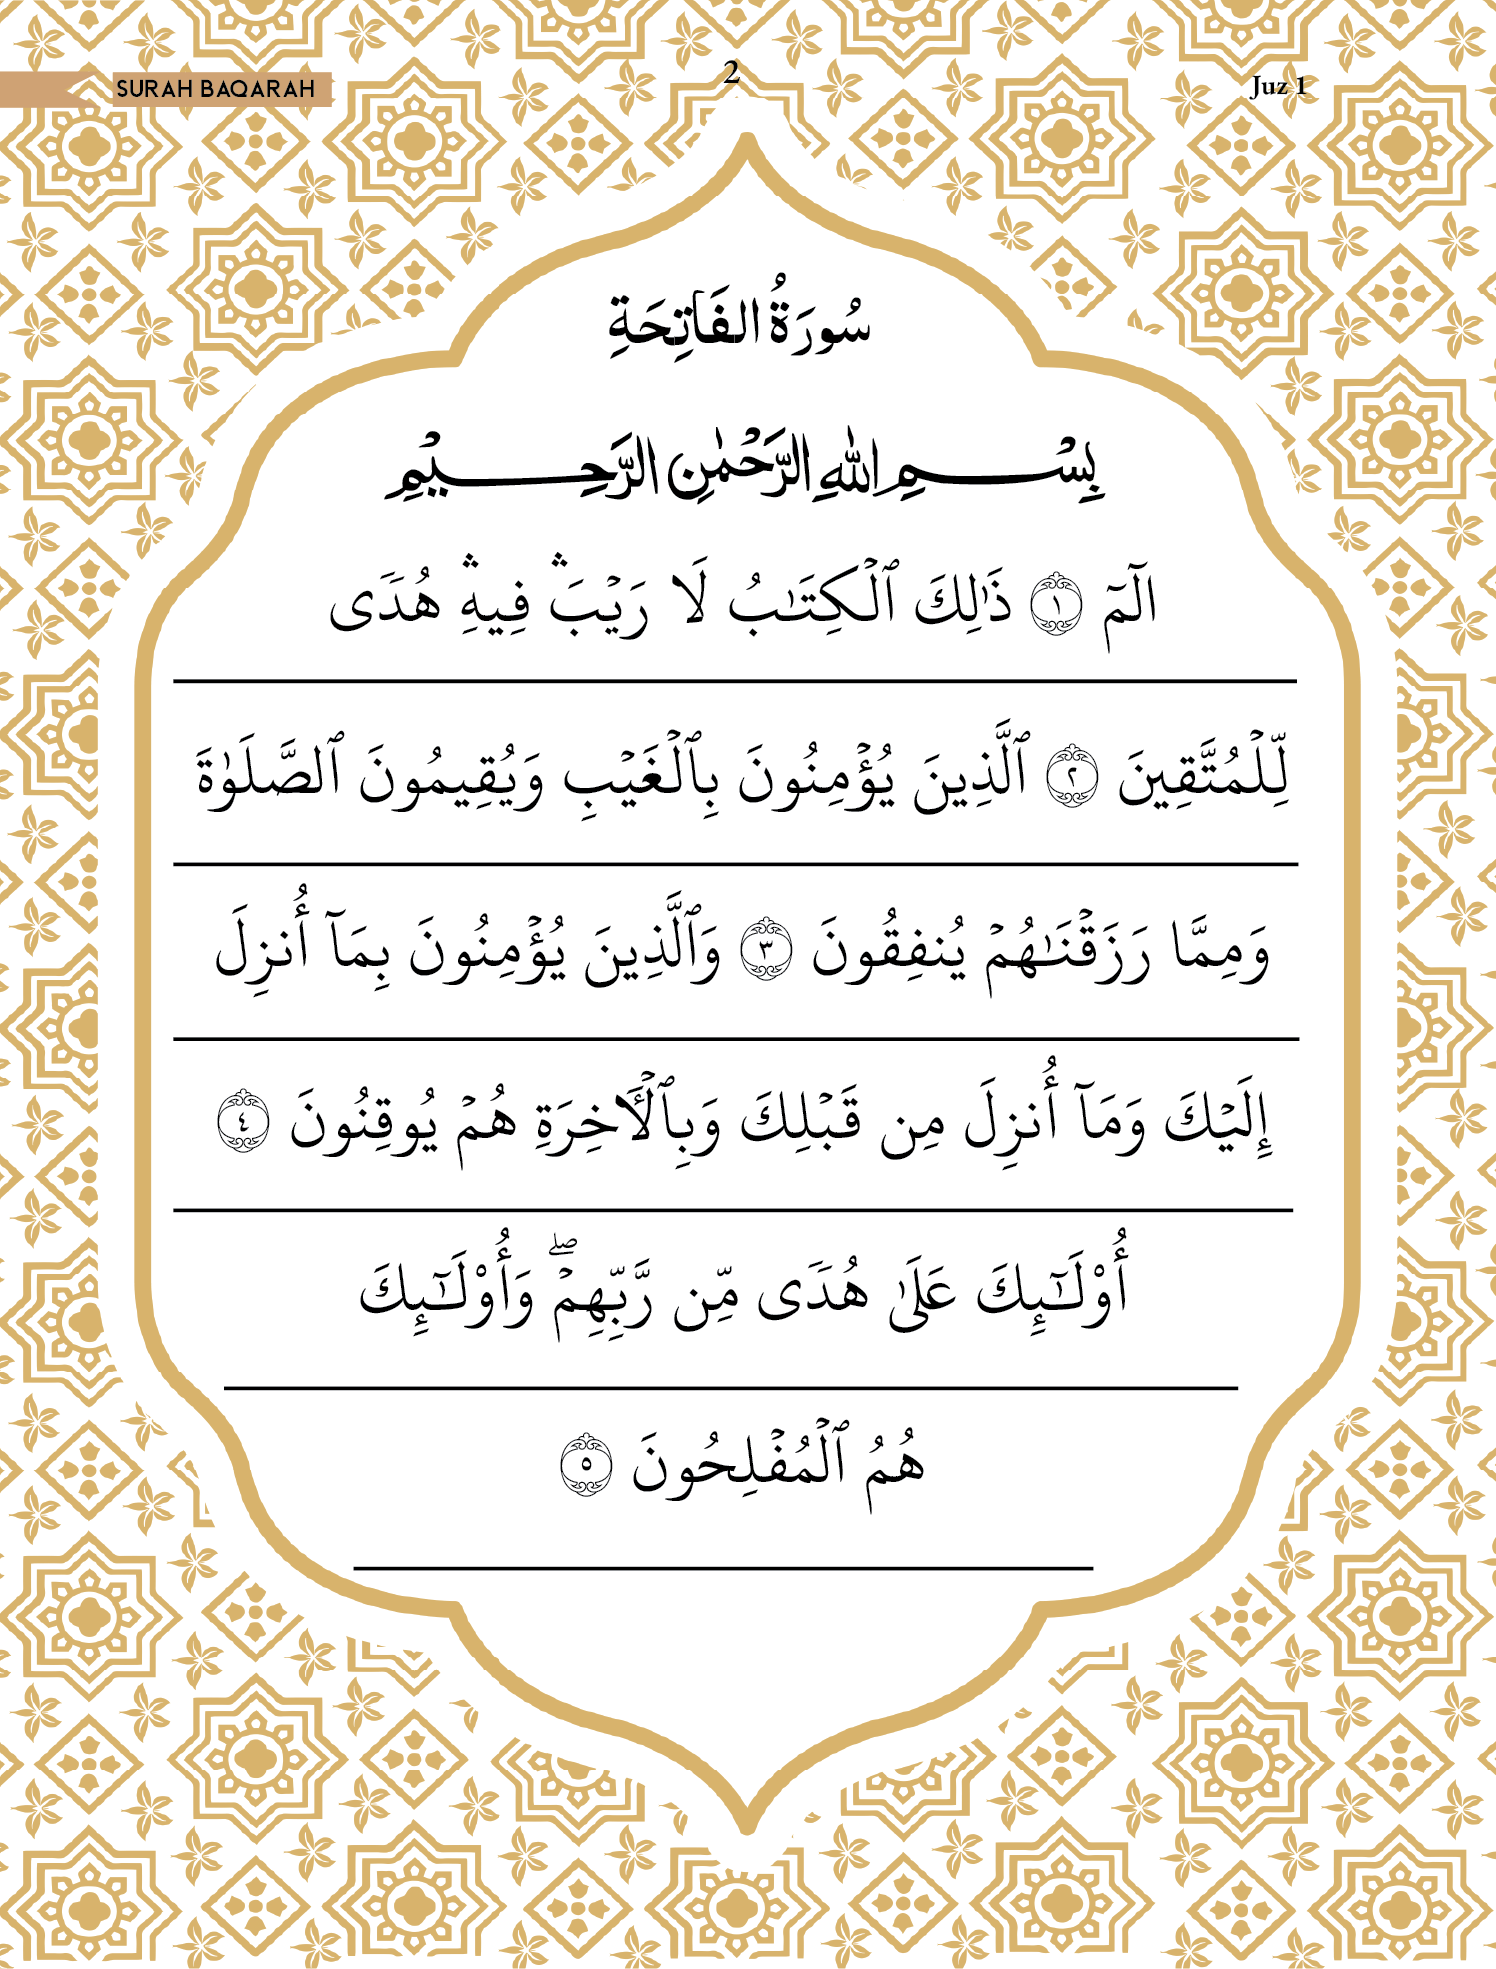 SURAH BAQARAH
2
Juz 1
سُورَةُ الفَاتِحَةِ
بِسْمِ اللهِ الرَّحْمٰنِ الرَّحِيْمِ
الٓمٓ ١ ذَٰلِكَ ٱلْكِتَـٰبُ لَا رَيْبَ ۛ فِيهِ ۛ هُدًى
لِّلْمُتَّقِينَ ٢ ٱلَّذِينَ يُؤْمِنُونَ بِٱلْغَيْبِ وَيُقِيمُونَ ٱلصَّلَوٰةَ
وَمِمَّا رَزَقْنَـٰهُمْ يُنفِقُونَ ٣ وَٱلَّذِينَ يُؤْمِنُونَ بِمَآ أُنزِلَ
إِلَيْكَ وَمَآ أُنزِلَ مِن قَبْلِكَ وَبِٱلْـَٔاخِرَةِ هُمْ يُوقِنُونَ ٤
أُو۟لَـٰٓئِكَ عَلَىٰ هُدًى مِّن رَّبِّهِمْ ۖ وَأُو۟لَـٰٓئِكَ
هُمُ ٱلْمُفْلِحُونَ ٥